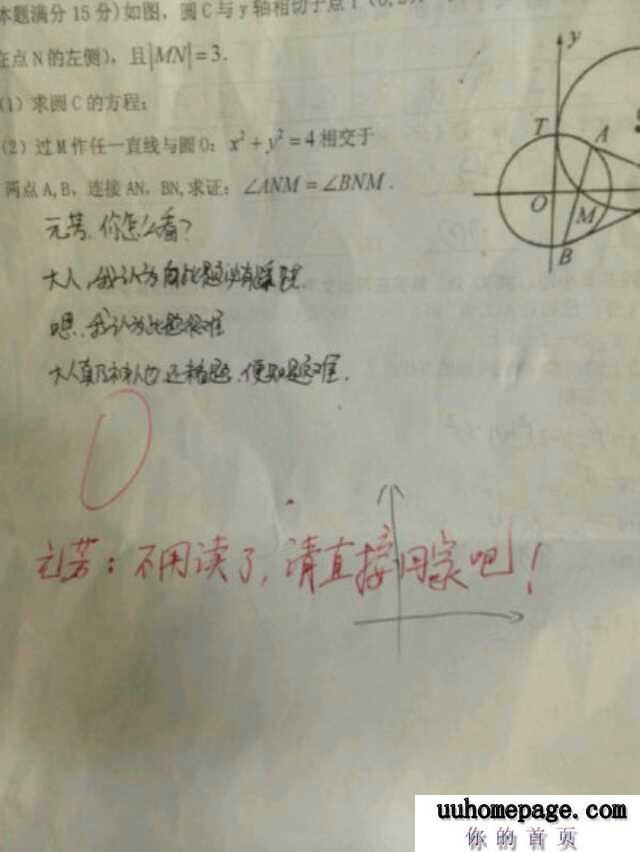 本题满分15分)如图,圆C与y轴相切于点T(0,2)
在点N的左侧),且|MN|=3.
(1)求圆C的方程;
(2)过M作任一直线与圆O:x²+y²=4相交于
两点A,B,连接AN,BN,求证:∠ANM=∠BNM.
y
T
A
O
M
B
元芳,你怎么看?
大人,我认为此题
嗯,我认为此题很难
大人真乃神人也,还没看题,便知题难.
0
元芳:不用读了,请直接回家吧!
uuhomepage.com
你的首页